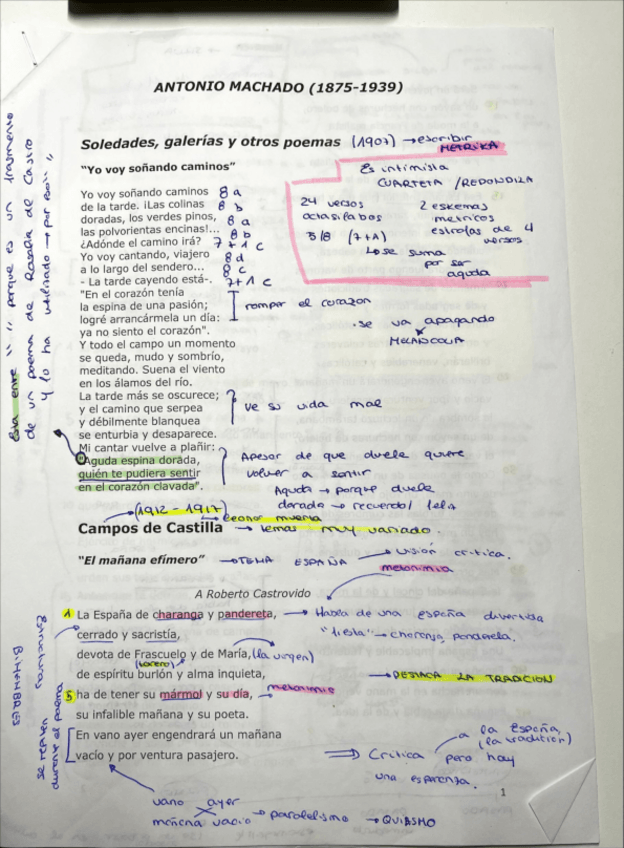 ANTONIO MACHADO (1875-1939)
Soledades, galerías y otros poemas (1907) → escribir
METRIKA
"Yo voy soñando caminos"
Es intimista
CUARTETA / REDONDIZA
24 versos
octosilabos
5/8 (7+A)
Lo se suma
por ser
aguda
2 eskemas
metricos
estrofas de 4
versos
Yo voy soñando caminos 8 a
de la tarde. ¡Las colinas 8 b
doradas, los verdes pinos, 8 a
las polvorientas encinas!... 8 b
¿Adónde el camino irá? 7+1 c
Yo voy cantando, viajero 8 d
a lo largo del sendero... 8 c
- La tarde cayendo está-. 7+1 c
"En el corazón tenía
la espina de una pasión;
logré arrancármela un día:
ya no siento el corazón".
romper el corazon
· se va apagando
MELANCOLIA
Y todo el campo un momento
se queda, mudo y sombrío,
meditando. Suena el viento
en los álamos del río.
La tarde más se oscurece;
y el camino que serpea
y débilmente blanquea
se enturbia y desaparece.
ve su vida mal
Mi cantar vuelve a plañir:
"Aguda espina dorada,
quién te pudiera sentir
en el corazón clavada".
Apesar de que duele quiere
volver a sentir
Aguda → porque duele
dorada → recuerdo/
Esta entre " " porque es un fragmento
de un poema de Rosalia de Castro
y lo ha utilizado →
(1912-1917)
→ Leonor muerta
Campos de Castilla → temas muy variado.
"El mañana efímero" → TEMA ESPAÑA → visión crítica.
metonimia
A Roberto Castrovido
1 La España de charanga y pandereta, → Habla de una españa divertida
cerrado y sacristía, "fiesta" → charanga, pandereta.
devota de Frascuelo y de María, (la virgen)
(torero)
de espíritu burlón y alma inquieta, → DESTACA LA TRADICION
5 ha de tener su mármol y su día, → metonimia
su infalible mañana y su poeta.
En vano ayer engendrará un mañana
vacío y por ventura pasajero.
⇒ Critica a la España, (la tradition)
pero hay
una esperanza.
BIMEMBRES
Estructuras
se repiten
durante el poema
1
vano ayer
mañana vacio → paralelismo → QUIASMO